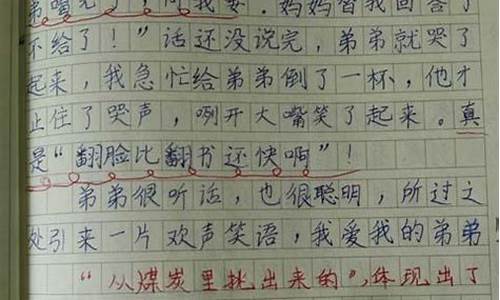 弟喝完了，问我要。妈妈替我回答了
不给了！”话还没说完，弟弟就哭了
起来，我急忙给弟弟倒了一杯，他才
止住了哭声，咧开大嘴笑了起来。真
是“翻脸比翻书还快啊”！
弟弟很听话，也很聪明，所过之
处引来一片欢声笑语，我爱我的弟弟
“从煤炭里挑出来的”，体现出了